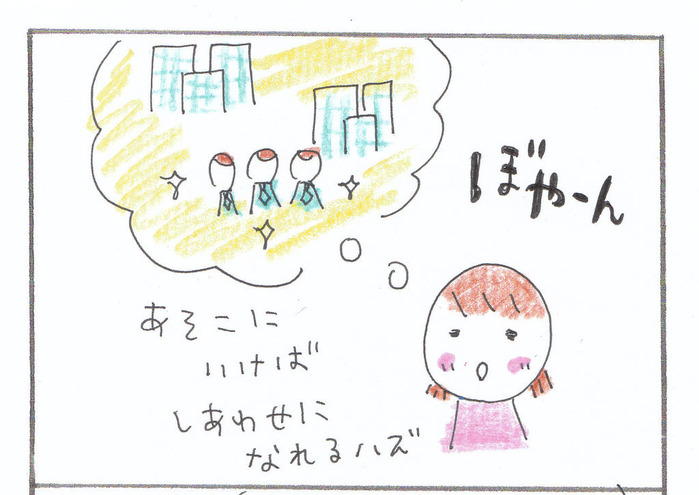 ぼやーん
あそこに
いけば
しあわせに
なれるハズ